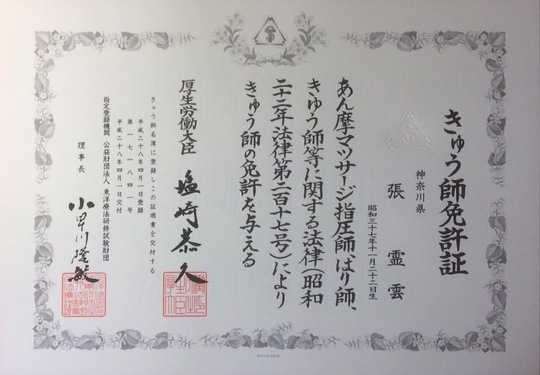 きゅう師免許証
神奈川県
張霊雲
昭和三十七年十一月二十二日生
あん摩マツサージ指圧師、はり師、
きゅう師等に関する法律(昭和
二十二年法律第二百十七号)により
きゅう師の免許を与える
厚生労働大臣 塩崎恭久
きゅう師名簿に登録しこの証明書を交付する
平成二十八年四月一日登録
第一七一八四一号
平成二十八年四月一日交付
指定登録機関 公益財団法人 東洋療法研修試験財団
理事長 小早川隆敏